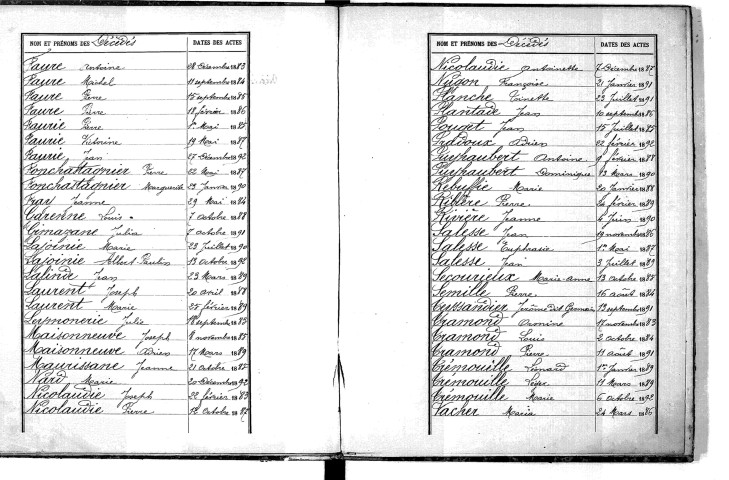 NOM ET PRÉNOMS DES Décédés DATES DES ACTES
Faure Antoine 08 Décembre 1883
Faure Michel 11 septembre 1884
Faure Pierre 15 septembre 1885
Faure Pierre 18 février 1886
Faurie Pierre 1er Mai 1885
Faurie Victorine 14 Mai 1887
Faurie Jean 27 Décembre 1892
Fonchastagnier Pierre 22 Mai 1887
Fonchastagnier Marguerite 23 Janvier 1890
Fray Jeanne 29 Mai 1884
Garenne Louis 7 octobre 1888
Gimazane Julia 7 octobre 1891
Lajoinie Marie 28 Juillet 1890
Lajoinie Albert Paulin 13 octobre 1892
Lalinde Jean 23 Mars 1889
Laurent Joseph 20 avril 1888
Laurent Marie 25 février 1889
Lormonerie Julie 18 septembre 1883
Maisonneuve Joseph 8 novembre 1885
Maisonneuve Adrien 17 Mars 1889
Maurissane Jeanne 21 octobre 1885
Nard Marie 20 Décembre 1892
Nicolaudie Joseph 22 février 1883
Nicolaudie Pierre 16 Octobre 1887
NOM ET PRÉNOMS DES Décédés DATES DES ACTES
Nicolaudie Antoinette 7 Décembre 1887
Nugon Françoise 21 Janvier 1891
Planche Toinette 23 Juillet 1891
Plantade Jean 10 septembre 1886
Pouget Jean 15 Juillet 1885
Pradoux Adrien 22 février 1892
Puyhaubert Antoine 9 février 1888
Puyhaubert Dominique 13 Mars 1890
Rebuffie Marie 20 Janvier 1888
Ribière Pierre 24 février 1889
Rivière Jeanne 6 Juin 1890
Salesse Jean 19 novembre 1886
Salesse Euphrasie 1er Mai 1887
Salesse Jean 3 Juillet 1889
Secourieux Marie-Anne 13 octobre 1885
Semille Pierre 16 août 1884
Tussandier Jérôme dit Germain 13 septembre 1891
Tramond Antonine 17 novembre 1883
Tramond Louis 2 octobre 1884
Tramond Pierre 11 août 1891
Trémouille Léonard 1er Janvier 1889
Trémouille Léger 11 Mars 1889
Trémouille Marie 6 octobre 1892
Vacher Maria 24 Mars 1886